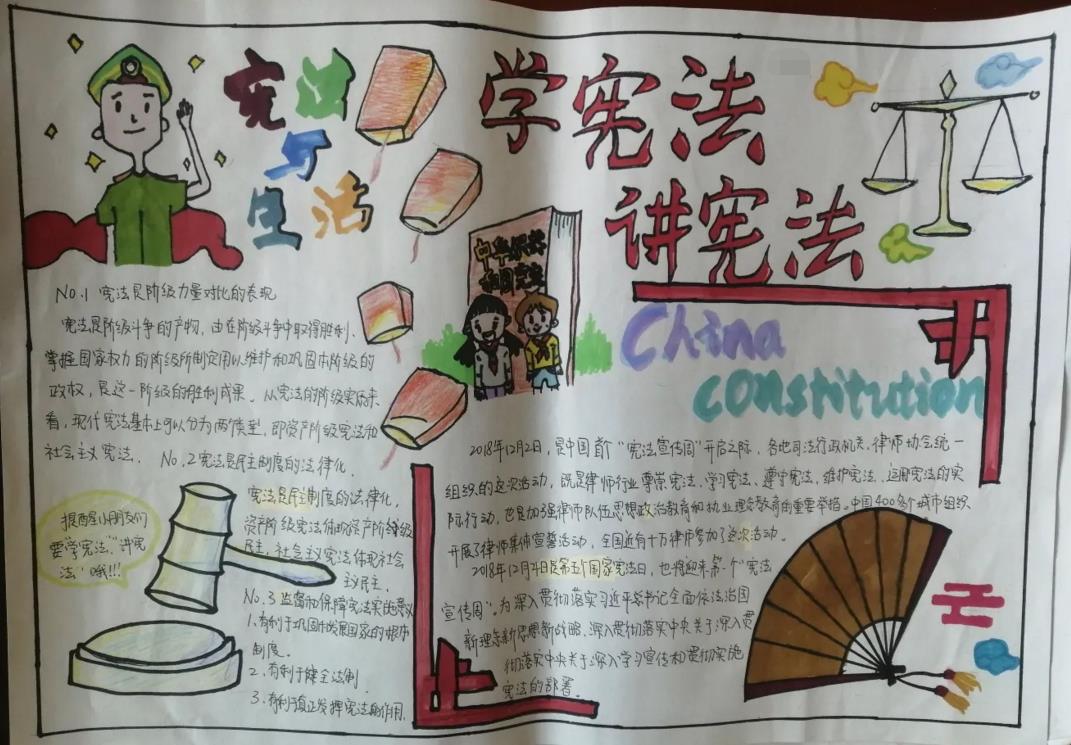 宪法
与
生活
学宪法
讲宪法
中华人民共
和国宪法
China
constitution
No.1 宪法是阶级力量对比的表现
宪法是阶级斗争的产物，由在阶级斗争中取得胜利、
掌握国家权力的阶级所制定用以维护和巩固本阶级的
政权，是这一阶级的胜利成果。从宪法的阶级实质来
看，现代宪法基本上可以分为两个类型，即资产阶级宪法和
社会主义宪法.
No.2 宪法是民主制度的法律化.
宪法是民主制度的法律化，
资产阶级宪法体现资产阶级
民主，社会主义宪法体现社会
主义民主.
提醒小朋友们
要学宪法""讲宪
法"哦!!!
No.3 监督和保障宪法实施意义
1.有利于巩固和发展国家的根本
制度.
2.有利于健全法制.
3.有利于真正发挥宪法的作用.
2018年12月2日，是中国首个"宪法宣传周"开启之际，各地司法行政机关、律师协会统一
组织的这次活动，既是律师行业尊崇宪法、学习宪法、遵守宪法、维护宪法、运用宪法的实
际行动，也是加强律师队伍思想政治教育和执业理念教育的重要举措。中国400多个城市组织
开展了律师集体宣誓活动，全国近有十万律师参加了这次活动。
2018年12月4日是第五个国家宪法日，也将迎来第一个"宪法
宣传周"。为深入贯彻落实习近平总书记全面依法治国
新理念新思想新战略、深入贯彻落实中央关于深入贯
彻落实中央关于深入学习宣传和贯彻实施
宪法的部署。